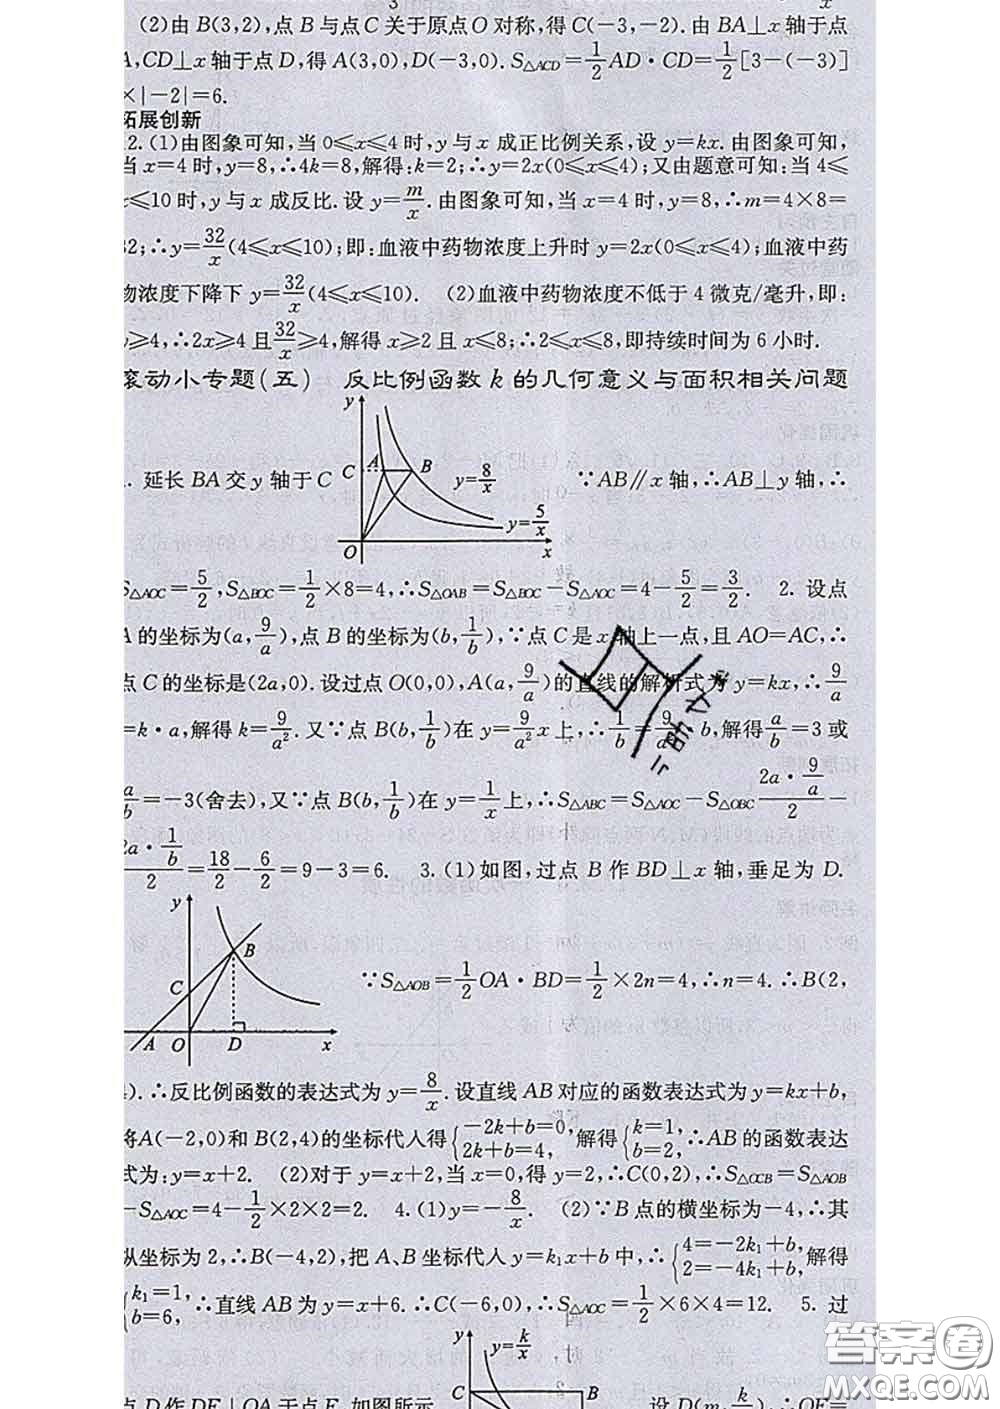 3
(2)由B(3,2),点B与点C关于原点O对称,得C(-3,-2).由BA⊥x轴于点
A,CD⊥x轴于点D,得A(3,0),D(-3,0).S△ACD=1/2AD·CD=1/2[3-(-3)]
×|-2|=6.
拓展创新
2.(1)由图象可知,当0≤x≤4时,y与x成正比例关系,设y=kx.由图象可知,
当x=4时,y=8,∴4k=8,解得:k=2;∴y=2x(0≤x≤4);又由题意可知:当4≤
x≤10时,y与x成反比.设y=m/x.由图象可知,当x=4时,y=8,∴m=4×8=
32;∴y=32/x(4≤x≤10);即:血液中药物浓度上升时y=2x(0≤x≤4);血液中药
物浓度下降下y=32/x(4≤x≤10). (2)血液中药物浓度不低于4微克/毫升,即:
y≥4,∴2x≥4且32/x≥4,解得x≥2且x≤8;∴2≤x≤8,即持续时间为6小时.
滚动小专题(五) 反比例函数k的几何意义与面积相关问题
y
C A B y=8/x
y=5/x
O x
. 延长BA交y轴于C ∵AB∥x轴,∴AB⊥y轴,∴
S△AOC=5/2,S△BOC=1/2×8=4,∴S△OAB=S△BOC-S△AOC=4-5/2=3/2. 2. 设点
A的坐标为(a,9/a),点B的坐标为(b,1/b),∵点C是x轴上一点,且AO=AC,∴
点C的坐标是(2a,0).设过点O(0,0),A(a,9/a)的直线的解析式为y=kx,∴9/a
=k·a,解得k=9/a².又∵点B(b,1/b)在y=9/a²x上,∴1/b=9/a²·b,解得a/b=3或
a/b=-3(舍去),又∵点B(b,1/b)在y=1/x上,∴S△ABC=S△AOC-S△OBC (2a·9/a)/2-
(2a·1/b)/2=18/2-6/2=9-3=6. 3.(1)如图,过点B作BD⊥x轴,垂足为D.
y
B
C
A O D x
∵S△AOB=1/2OA·BD=1/2×2n=4,∴n=4.∴B(2,
4).∴反比例函数的表达式为y=8/x.设直线AB对应的函数表达式为y=kx+b,
将A(-2,0)和B(2,4)的坐标代人得{-2k+b=0, 2k+b=4, 解得{k=1, b=2, ∴AB的函数表达
式为:y=x+2. (2)对于y=x+2,当x=0,得y=2,∴C(0,2),∴S△OCB=S△AOB
-S△AOC=4-1/2×2×2=2. 4.(1)y=-8/x. (2)∵B点的横坐标为-4,∴其
纵坐标为2,∴B(-4,2),把A、B坐标代人y=k₁x+b中,∴{4=-2k₁+b, 2=-4k₁+b, 解得
{k₁=1, b=6, ∴直线AB为y=x+6.∴C(-6,0),∴S△AOC=1/2×6×4=12. 5. 过
y y=k/x
C B
点D作DE⊥OA于点E,如图所示, 设D(m,k/m),∴OE=
答案圈
MXQE.COM